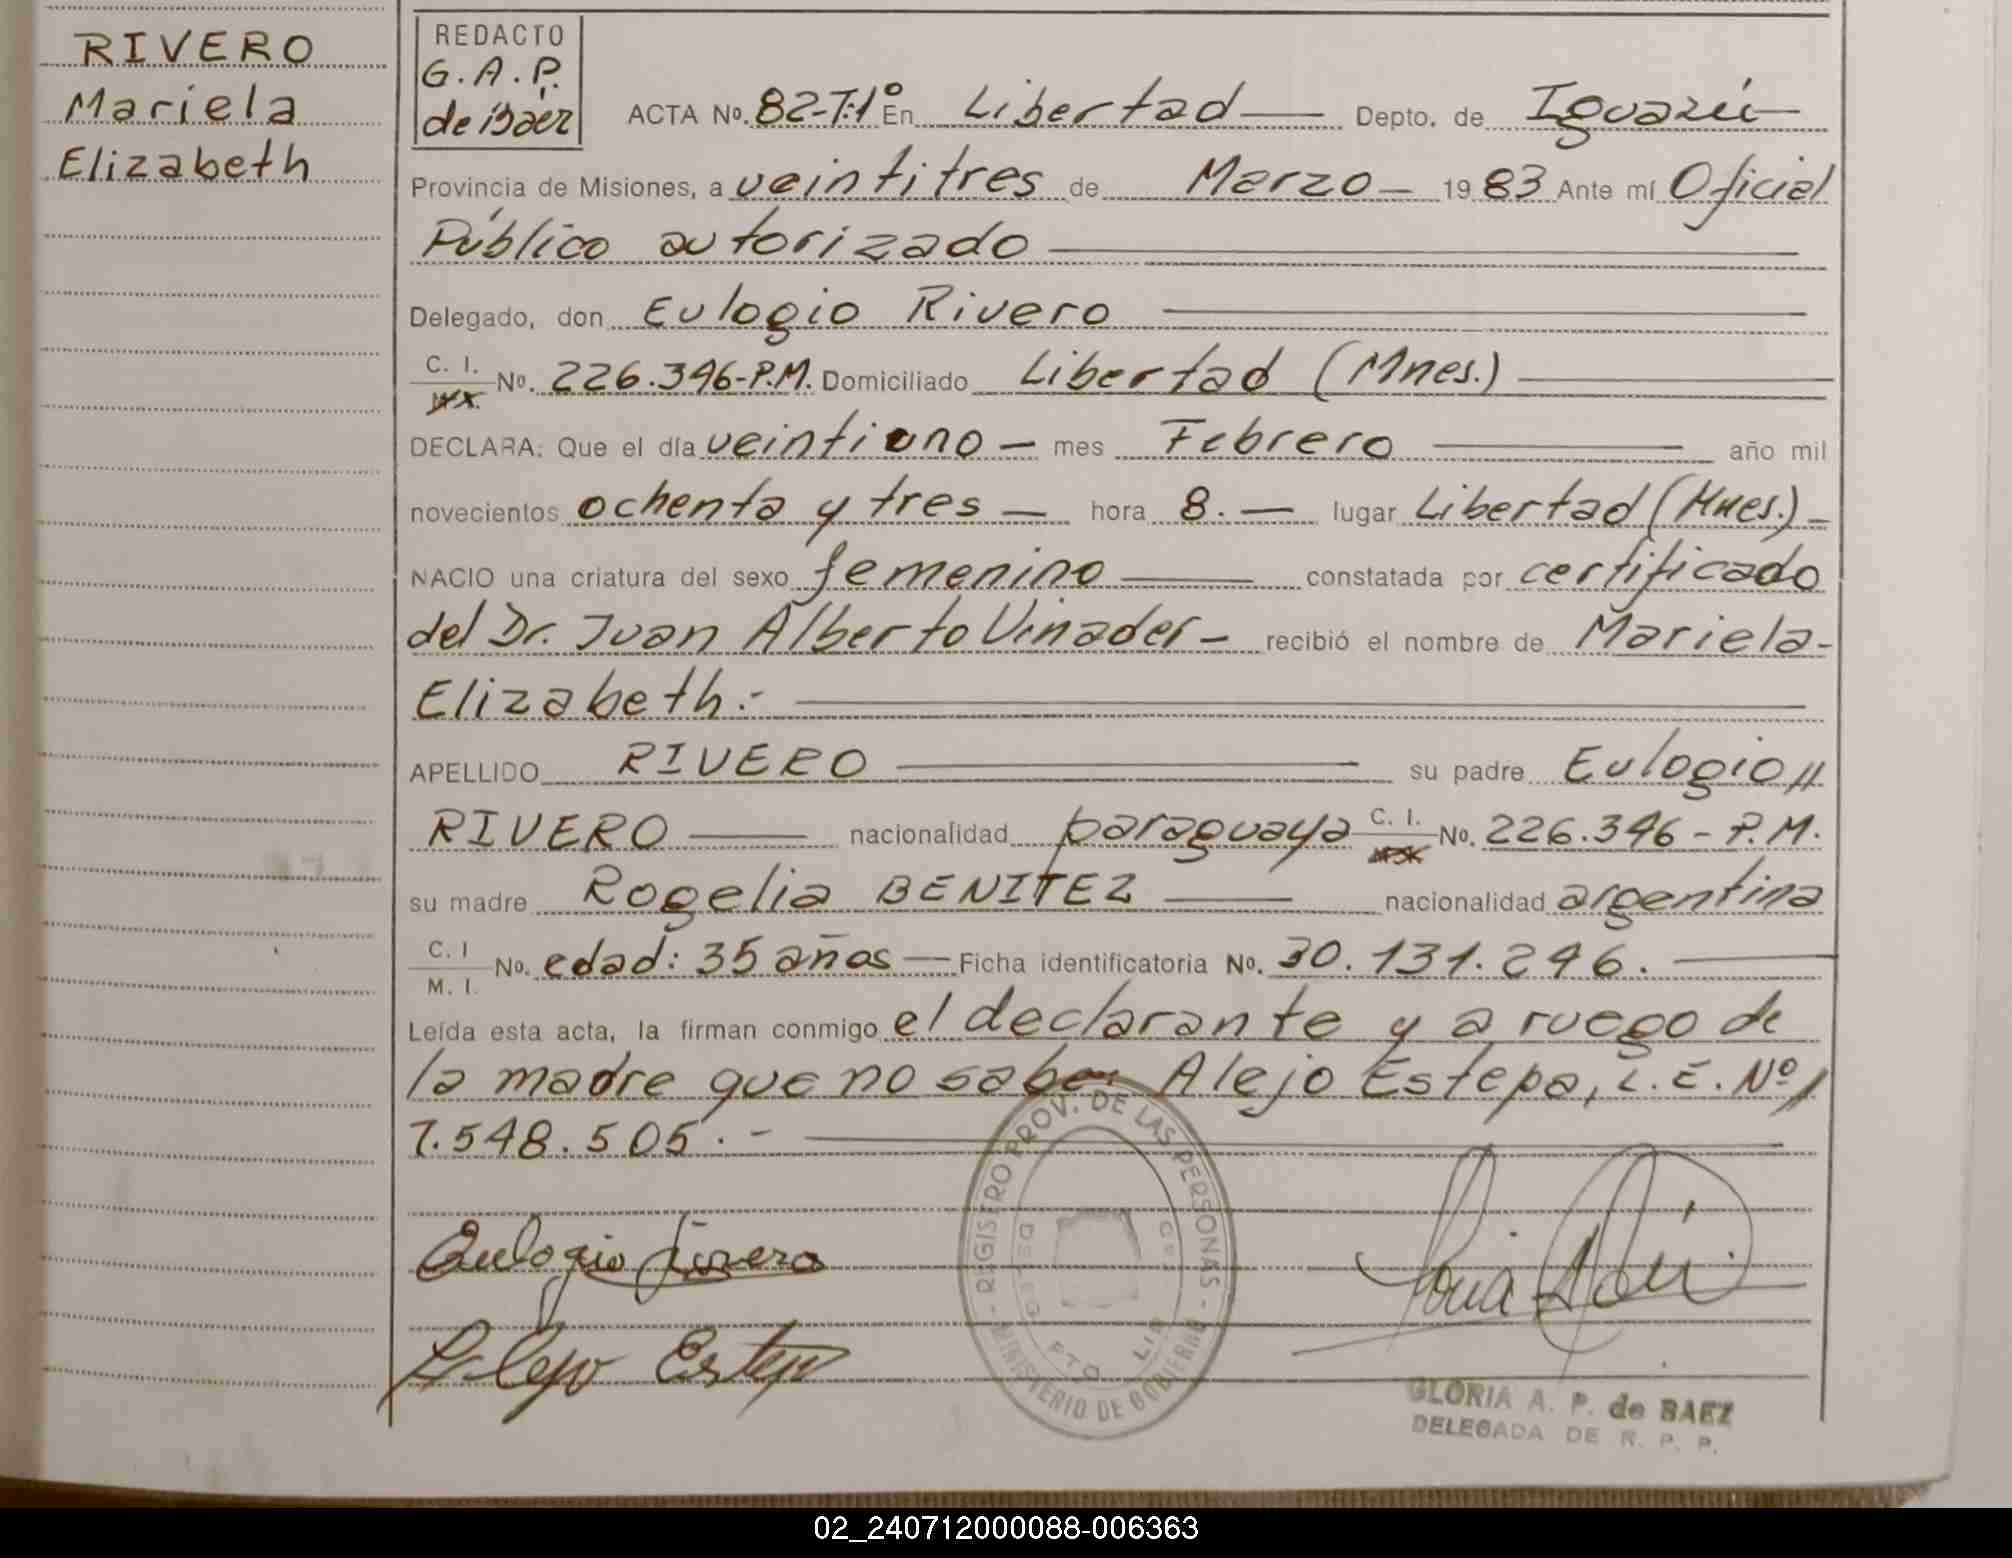 RIVERO
Mariela
Elizabeth
REDACTO
G. A. P.
de Báez
ACTA No. 82-T:1° En Libertad — Depto. de Iguazú —
Provincia de Misiones, a veintitres de Marzo — 1983 Ante mí Oficial
Público autorizado
Delegado, don Eulogio Rivero
C. I. No. 226.396-P.M. Domiciliado Libertad (Mnes.)
DECLARA: Que el día veintiuno — mes Febrero — año mil
novecientos ochenta y tres — hora 8. — lugar Libertad (Mnes.) —
NACIO una criatura del sexo femenino — constatada por certificado
del Dr. Juan Alberto Vinader — recibió el nombre de Mariela-
Elizabeth.-
APELLIDO RIVERO — su padre Eulogio //
RIVERO — nacionalidad paraguaya C. I. No. 226.396 - P.M.
su madre Rogelia BENITEZ — nacionalidad argentina
C. I. / M. I. No. edad: 35 años — Ficha identificatoria No. 30.131.296. —
Leída esta acta, la firman conmigo el declarante y a ruego de
la madre que no saber Alejo Estepa, L. E. Nº /
7.548.505.-
Eulogio Rivero
Alejo Estepa
- REGISTRO PROV. DE LAS PERSONAS -
MINISTERIO DE GOBIERNO
GLORIA A. P. de BAEZ
DELEGADA DE R. P. P.
02_240712000088-006363